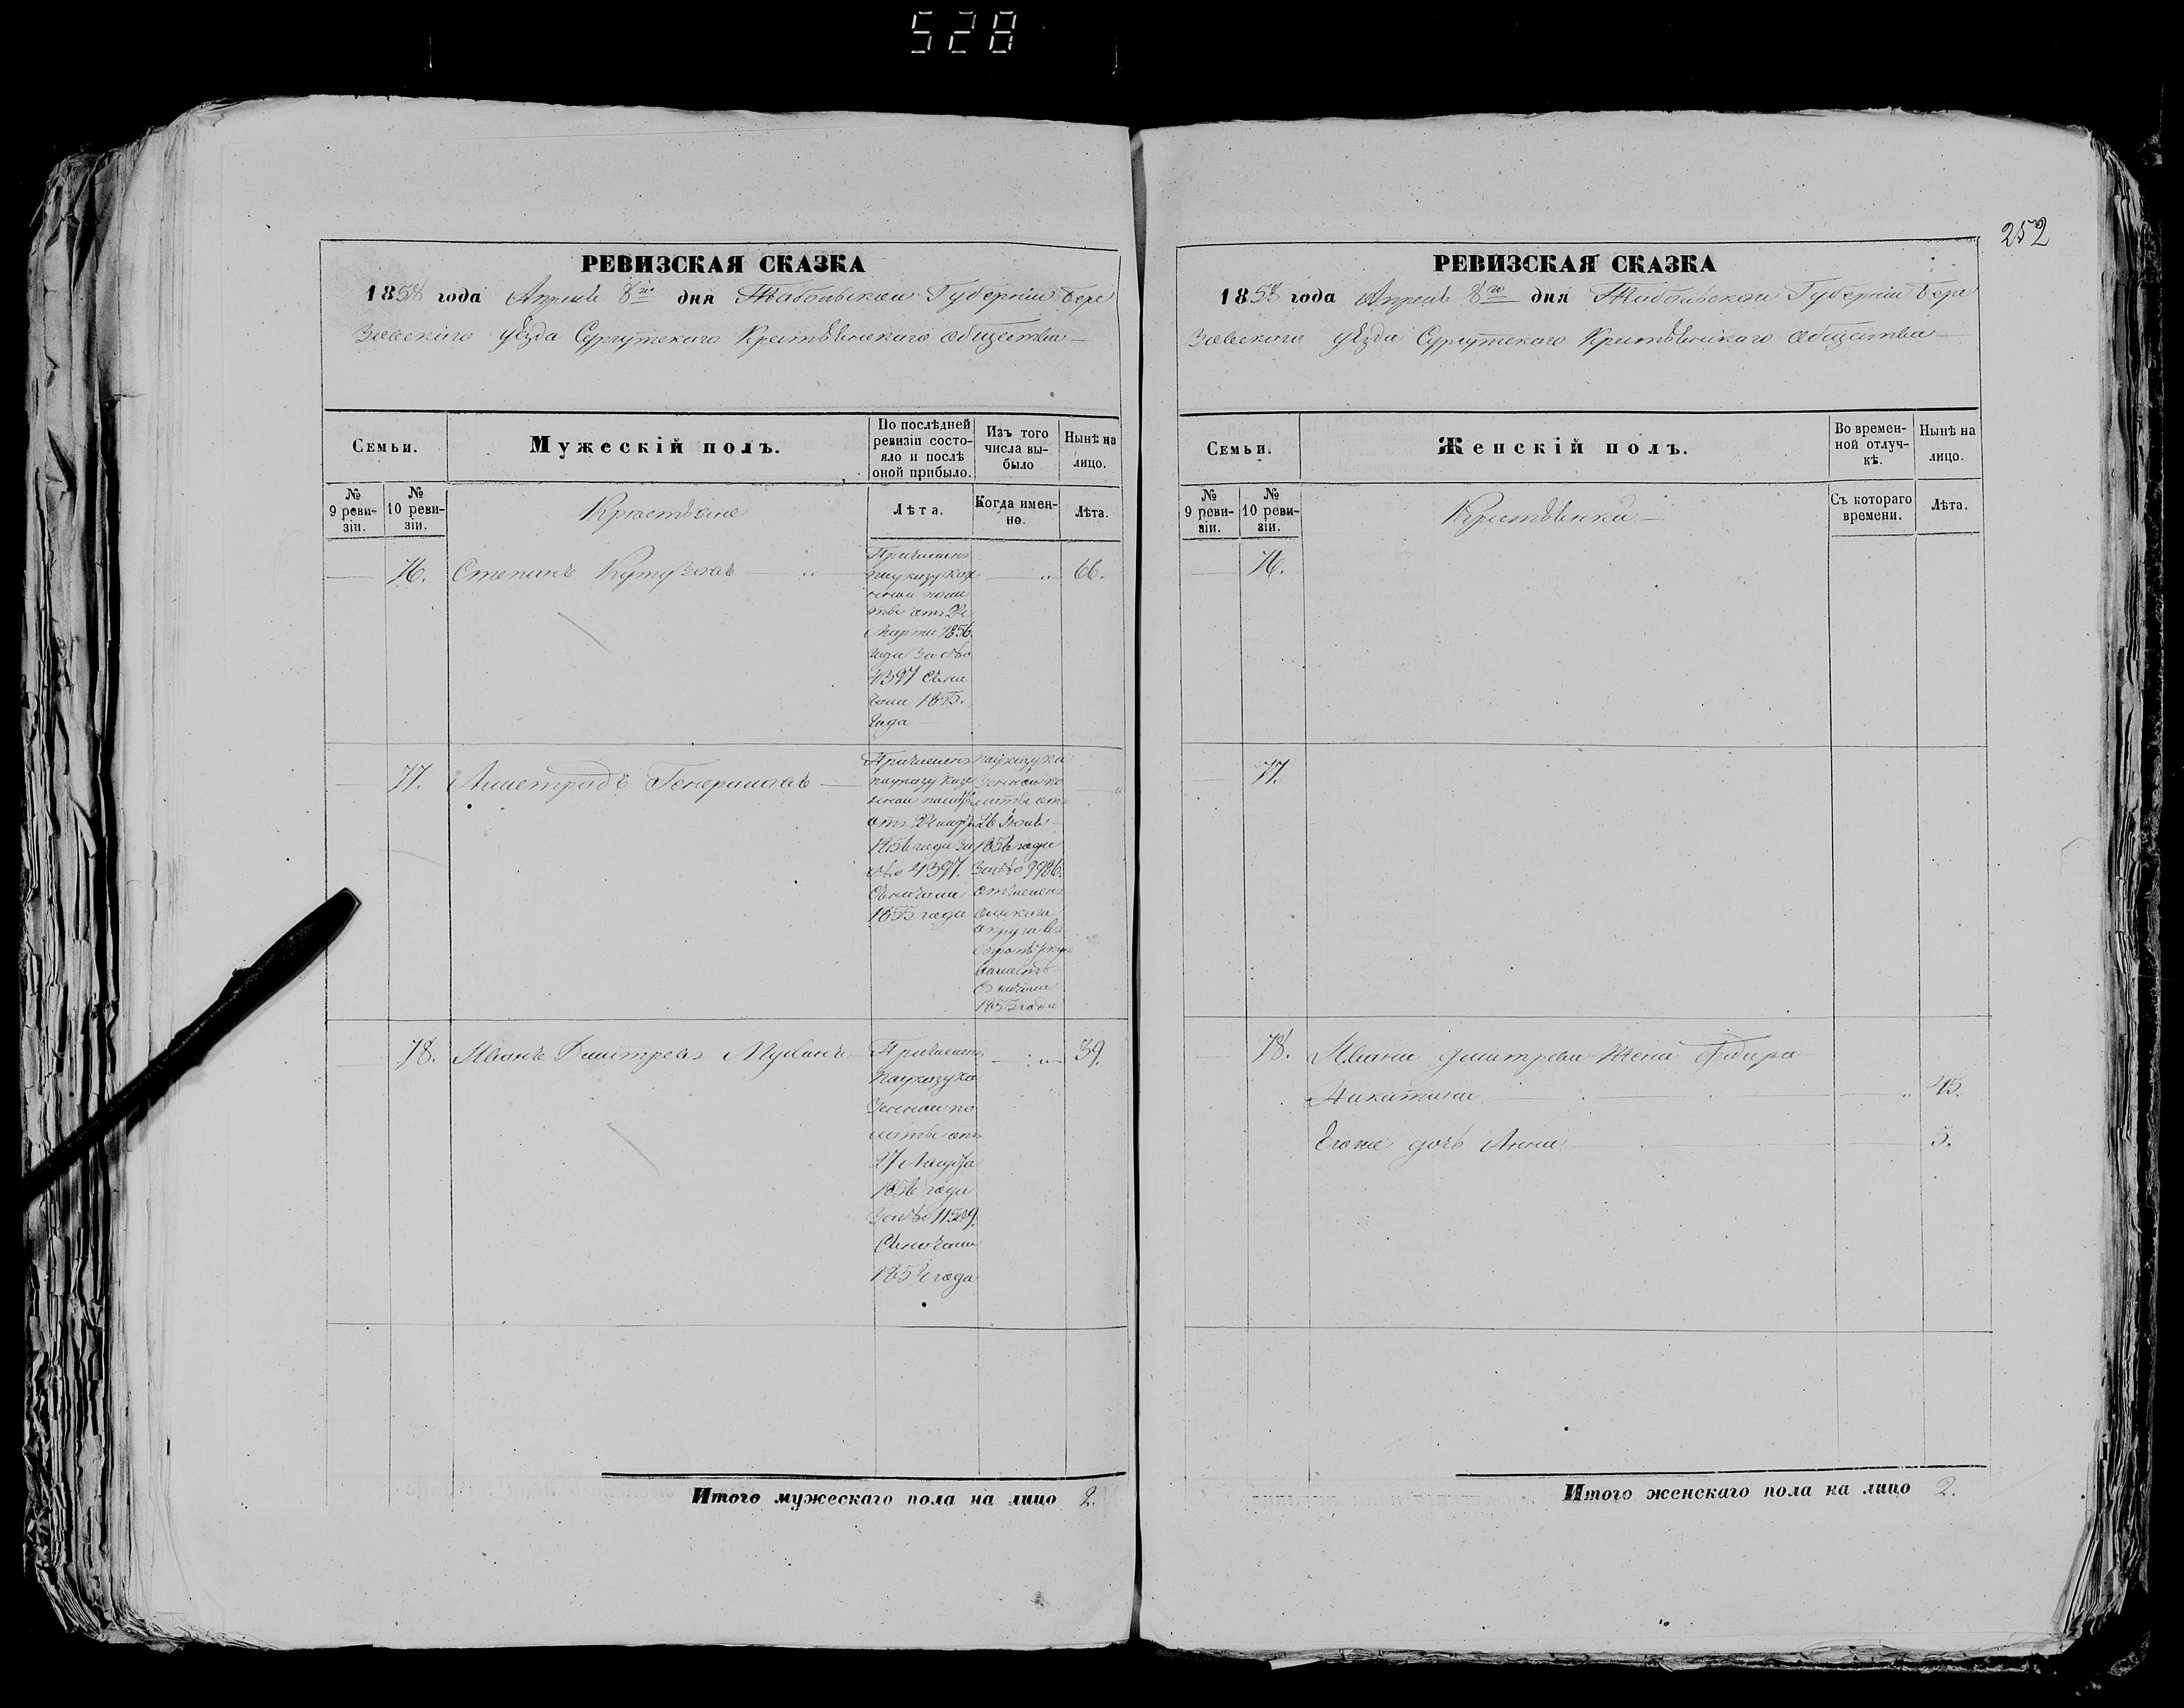 528
252
РЕВИЗСКАЯ СКАЗКА
1858 года Апреля 8го дня Тобольской Губерніи Бере
зовского уѣзда Сургутского Крестьянского общества
Семьи.
Мужескій полъ.
По послѣдней
ревизіи состо-
яло и послѣ
оной прибыло.
Изъ того
числа вы-
было
Нынѣ на
лицо.
№
9 реви-
зіи.
№
10 реви-
зіи.
Крестьяне
Лѣта.
Когда имен-
но.
Лѣта.
76. Степанъ Кутузовъ
Причисленъ
поуказу Каз
енной пала
ты отъ
Марта 1856
года за №
4397 съ на
чала 1855.
года
66.
77. Генераловъ
Причисленъ
поуказу Казе
нной палаты
отъ
1856 года за
№ 4397.
съ начала
1855 года
поуказу Ка
зенной па
латы отъ
1856 года
за № 9986.
отчисленъ
округа въ
волость
съ начала
1855 года
78. Иванъ Дмитревъ
Причисленъ
поуказу Ка
зенной па
латы отъ
27 Августа
1856 года
за № 11509.
съ начала
1854 года
39.
Итого мужескаго пола на лицо 2.
РЕВИЗСКАЯ СКАЗКА
1858 года Апреля 8го дня Тобольской Губерніи Бере
зовского уѣзда Сургутского Крестьянского общества
Семьи.
Женскій полъ.
Во времен-
ной отлуч-
кѣ.
Нынѣ на
лицо.
№
9 реви-
зіи.
№
10 реви-
зіи.
Крестьянки
Съ котораго
времени.
Лѣта.
76.
77.
78. Ивана Дмитрева жена
Никитина 45.
Егоже дочь Анна 5.
Итого женскаго пола на лицо 2.